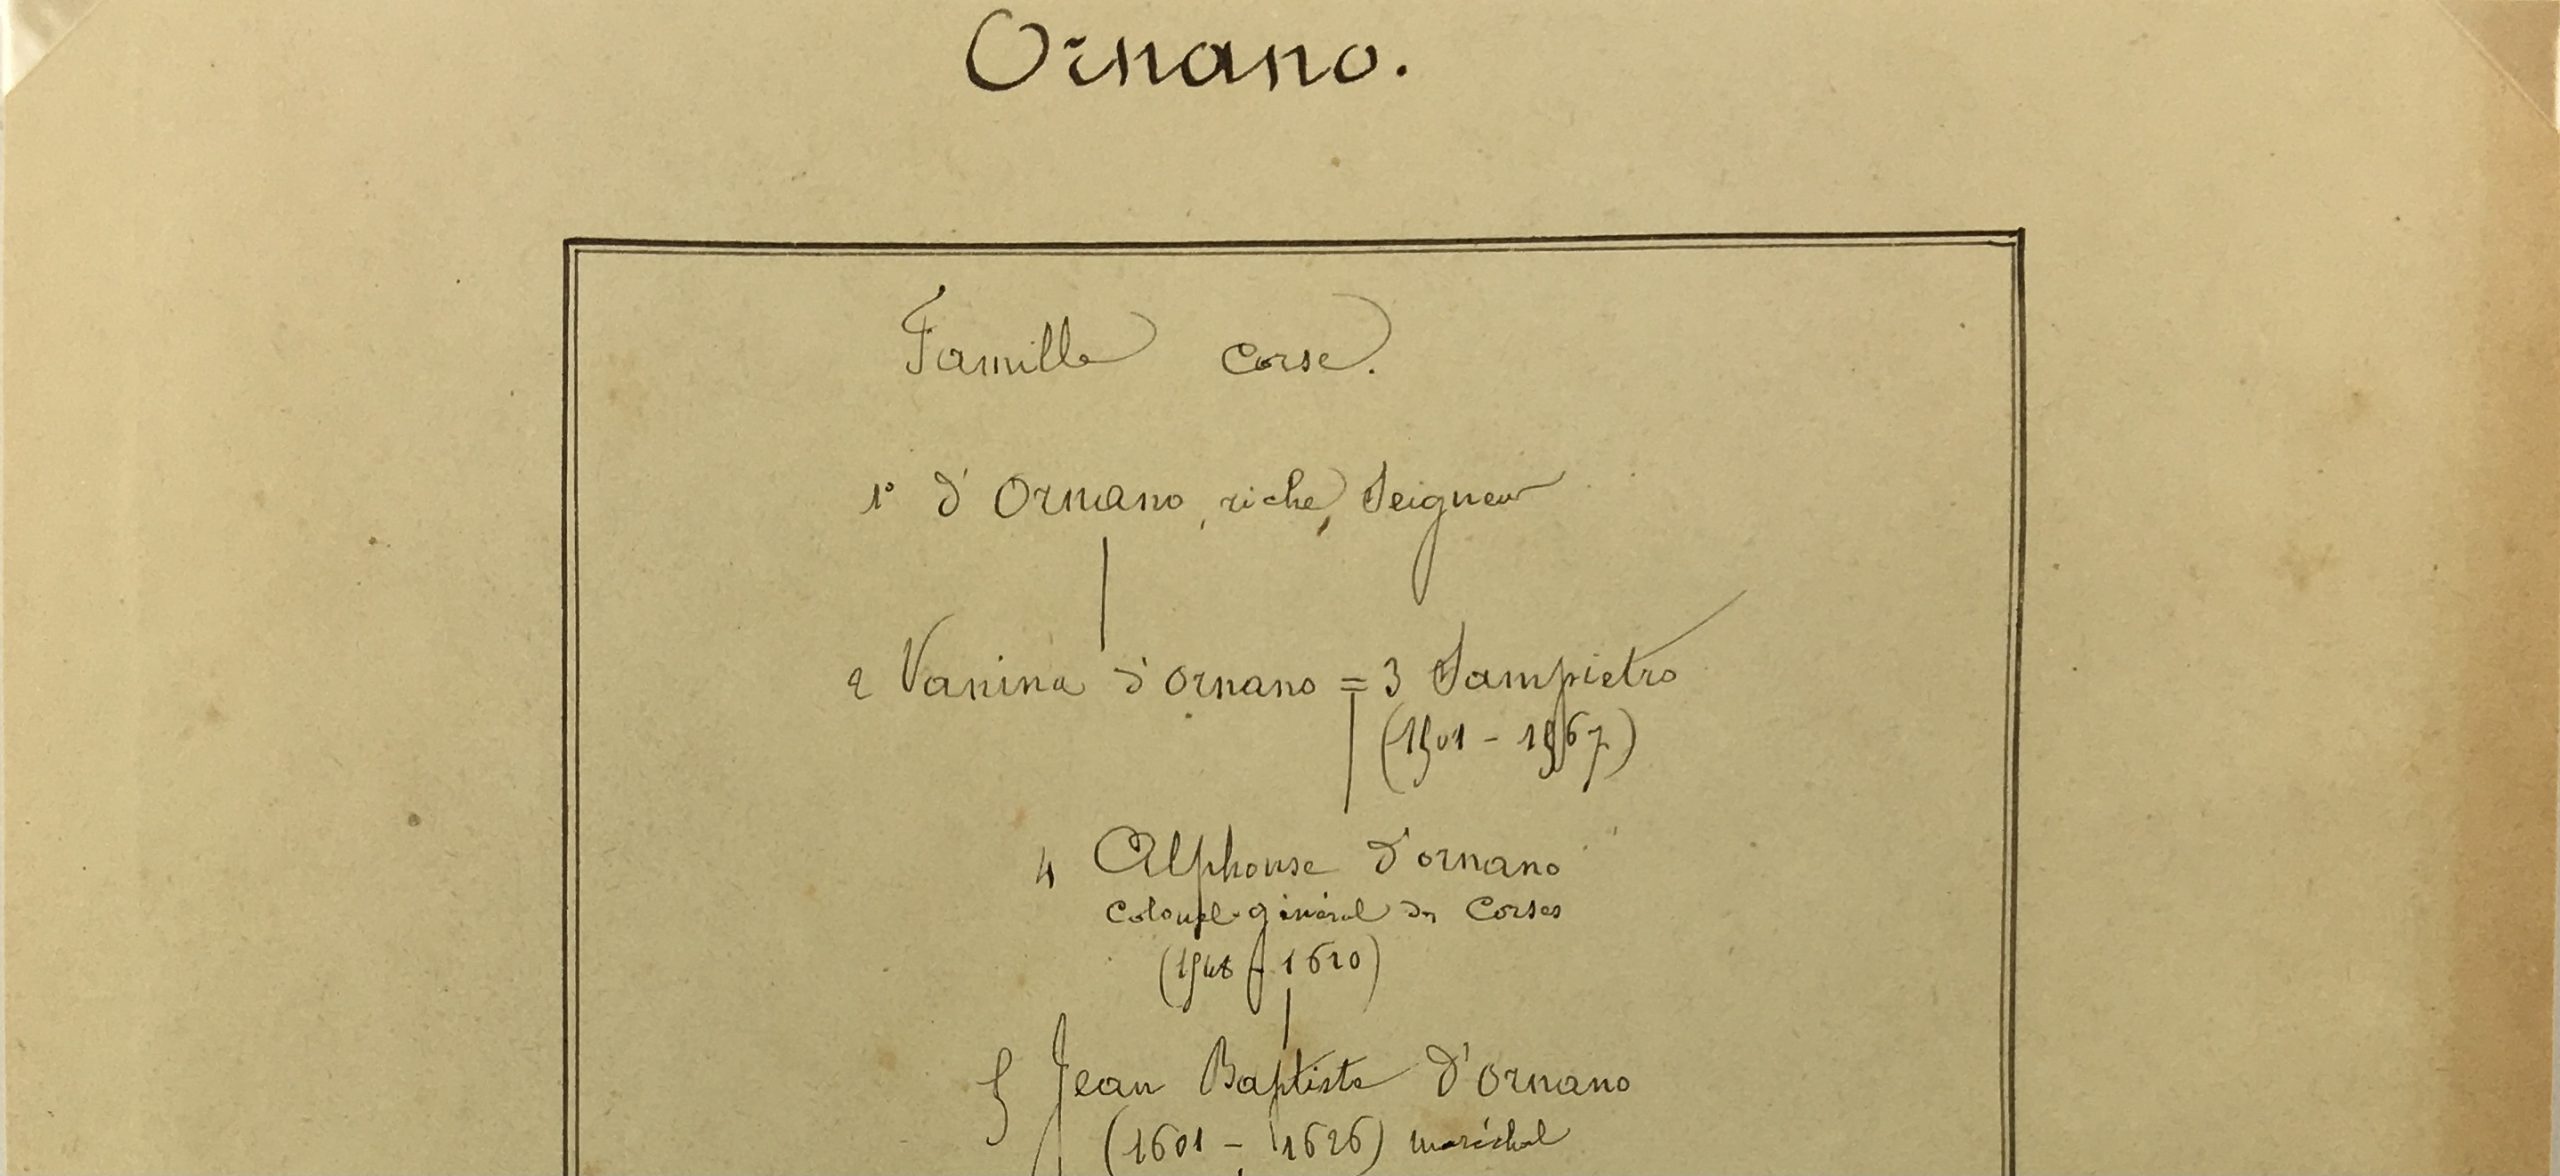 Ornano.
Famille Corse.
1° d'Ornano, riche, Seigneur
2 Vanina d'Ornano = 3 Sampietro
(1501 - 1567)
4 Alphonse d'ornano
Colonel-général des Corses
(1548 - 1610)
5 Jean Baptiste d'Ornano
(1601 - 1626) maréchal